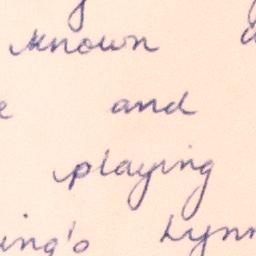 known
and
playing
ing's Lynn